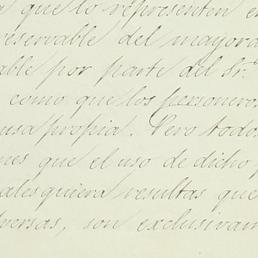 que lo representen e
reservable del mayora
able por parte del Sr.
como que los personeros
usa propia. Pero todos
nes que el uso de dicho p
alesquiera resultas que
versas, son exclusivam